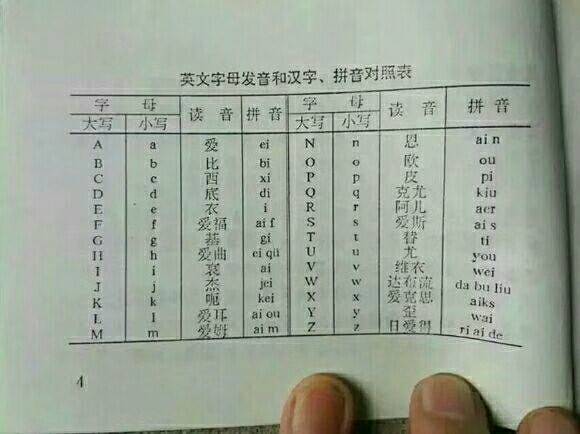 英文字母发音和汉字、拼音对照表
字 母 读 音 拼 音 字 母 读 音 拼 音
大写 小写 大写 小写
A a 爱 ei N n 恩 ai n
B b 比 bi O o 欧 ou
C c 西 xi P p 皮 pi
D d 底 di Q q 克尤 kiu
E e 衣 i R r 阿儿 aer
F f 爱福 ai f S s 爱斯 ai s
G g 基 gi T t 替 ti
H h 爱曲 ei qü U u 尤 you
I i 哀 ai V v 维衣 wei
J j 杰 jei W w 达布流 da bu liu
K k 呃 kei X x 爱克思 aiks
L l 爱耳 ai ou Y y 歪 wai
M m 爱姆 ai m Z z 日爱得 ri ai de
4